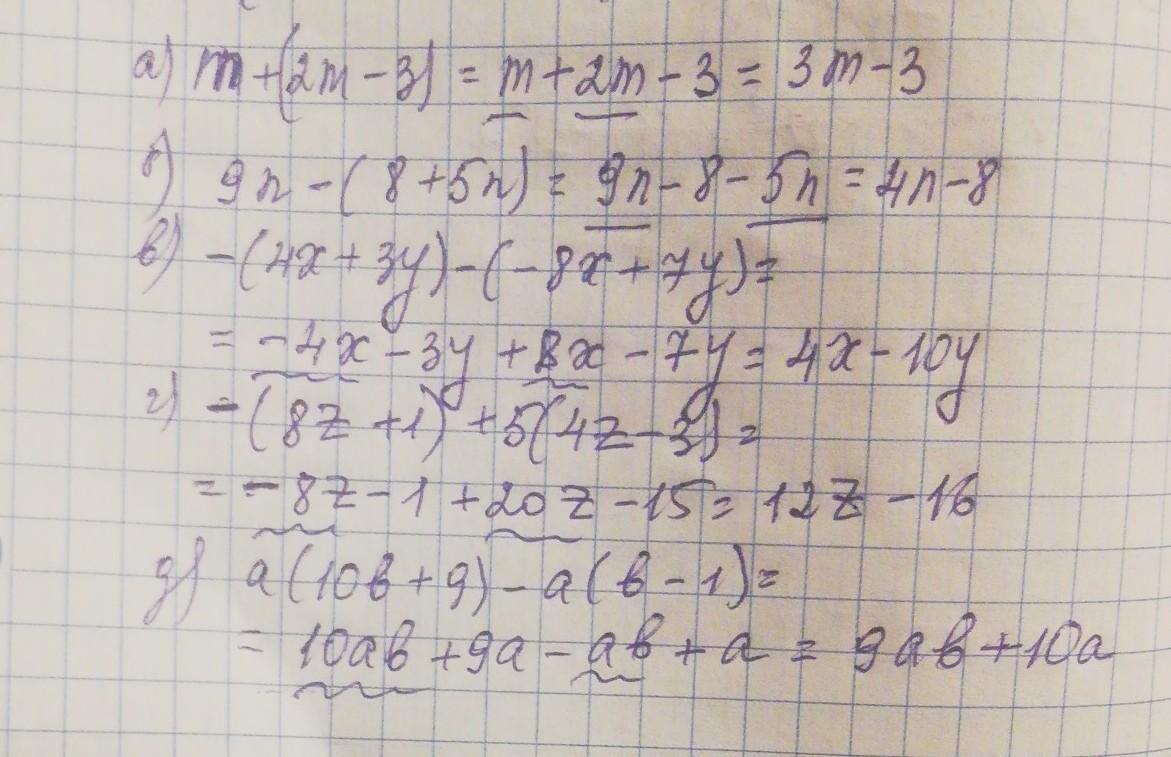 а) m+(2m-3) = m+2m-3 = 3m-3
б) 9n-(8+5n) = 9n-8-5n = 4n-8
в) -(4x+3y)-(-8x+7y)=
= -4x-3y+8x-7y = 4x-10y
г) -(8z+1)+5(4z-3)=
= -8z-1+20z-15 = 12z-16
д) a(10b+9)-a(b-1)=
= 10ab+9a-ab+a = 9ab+10a